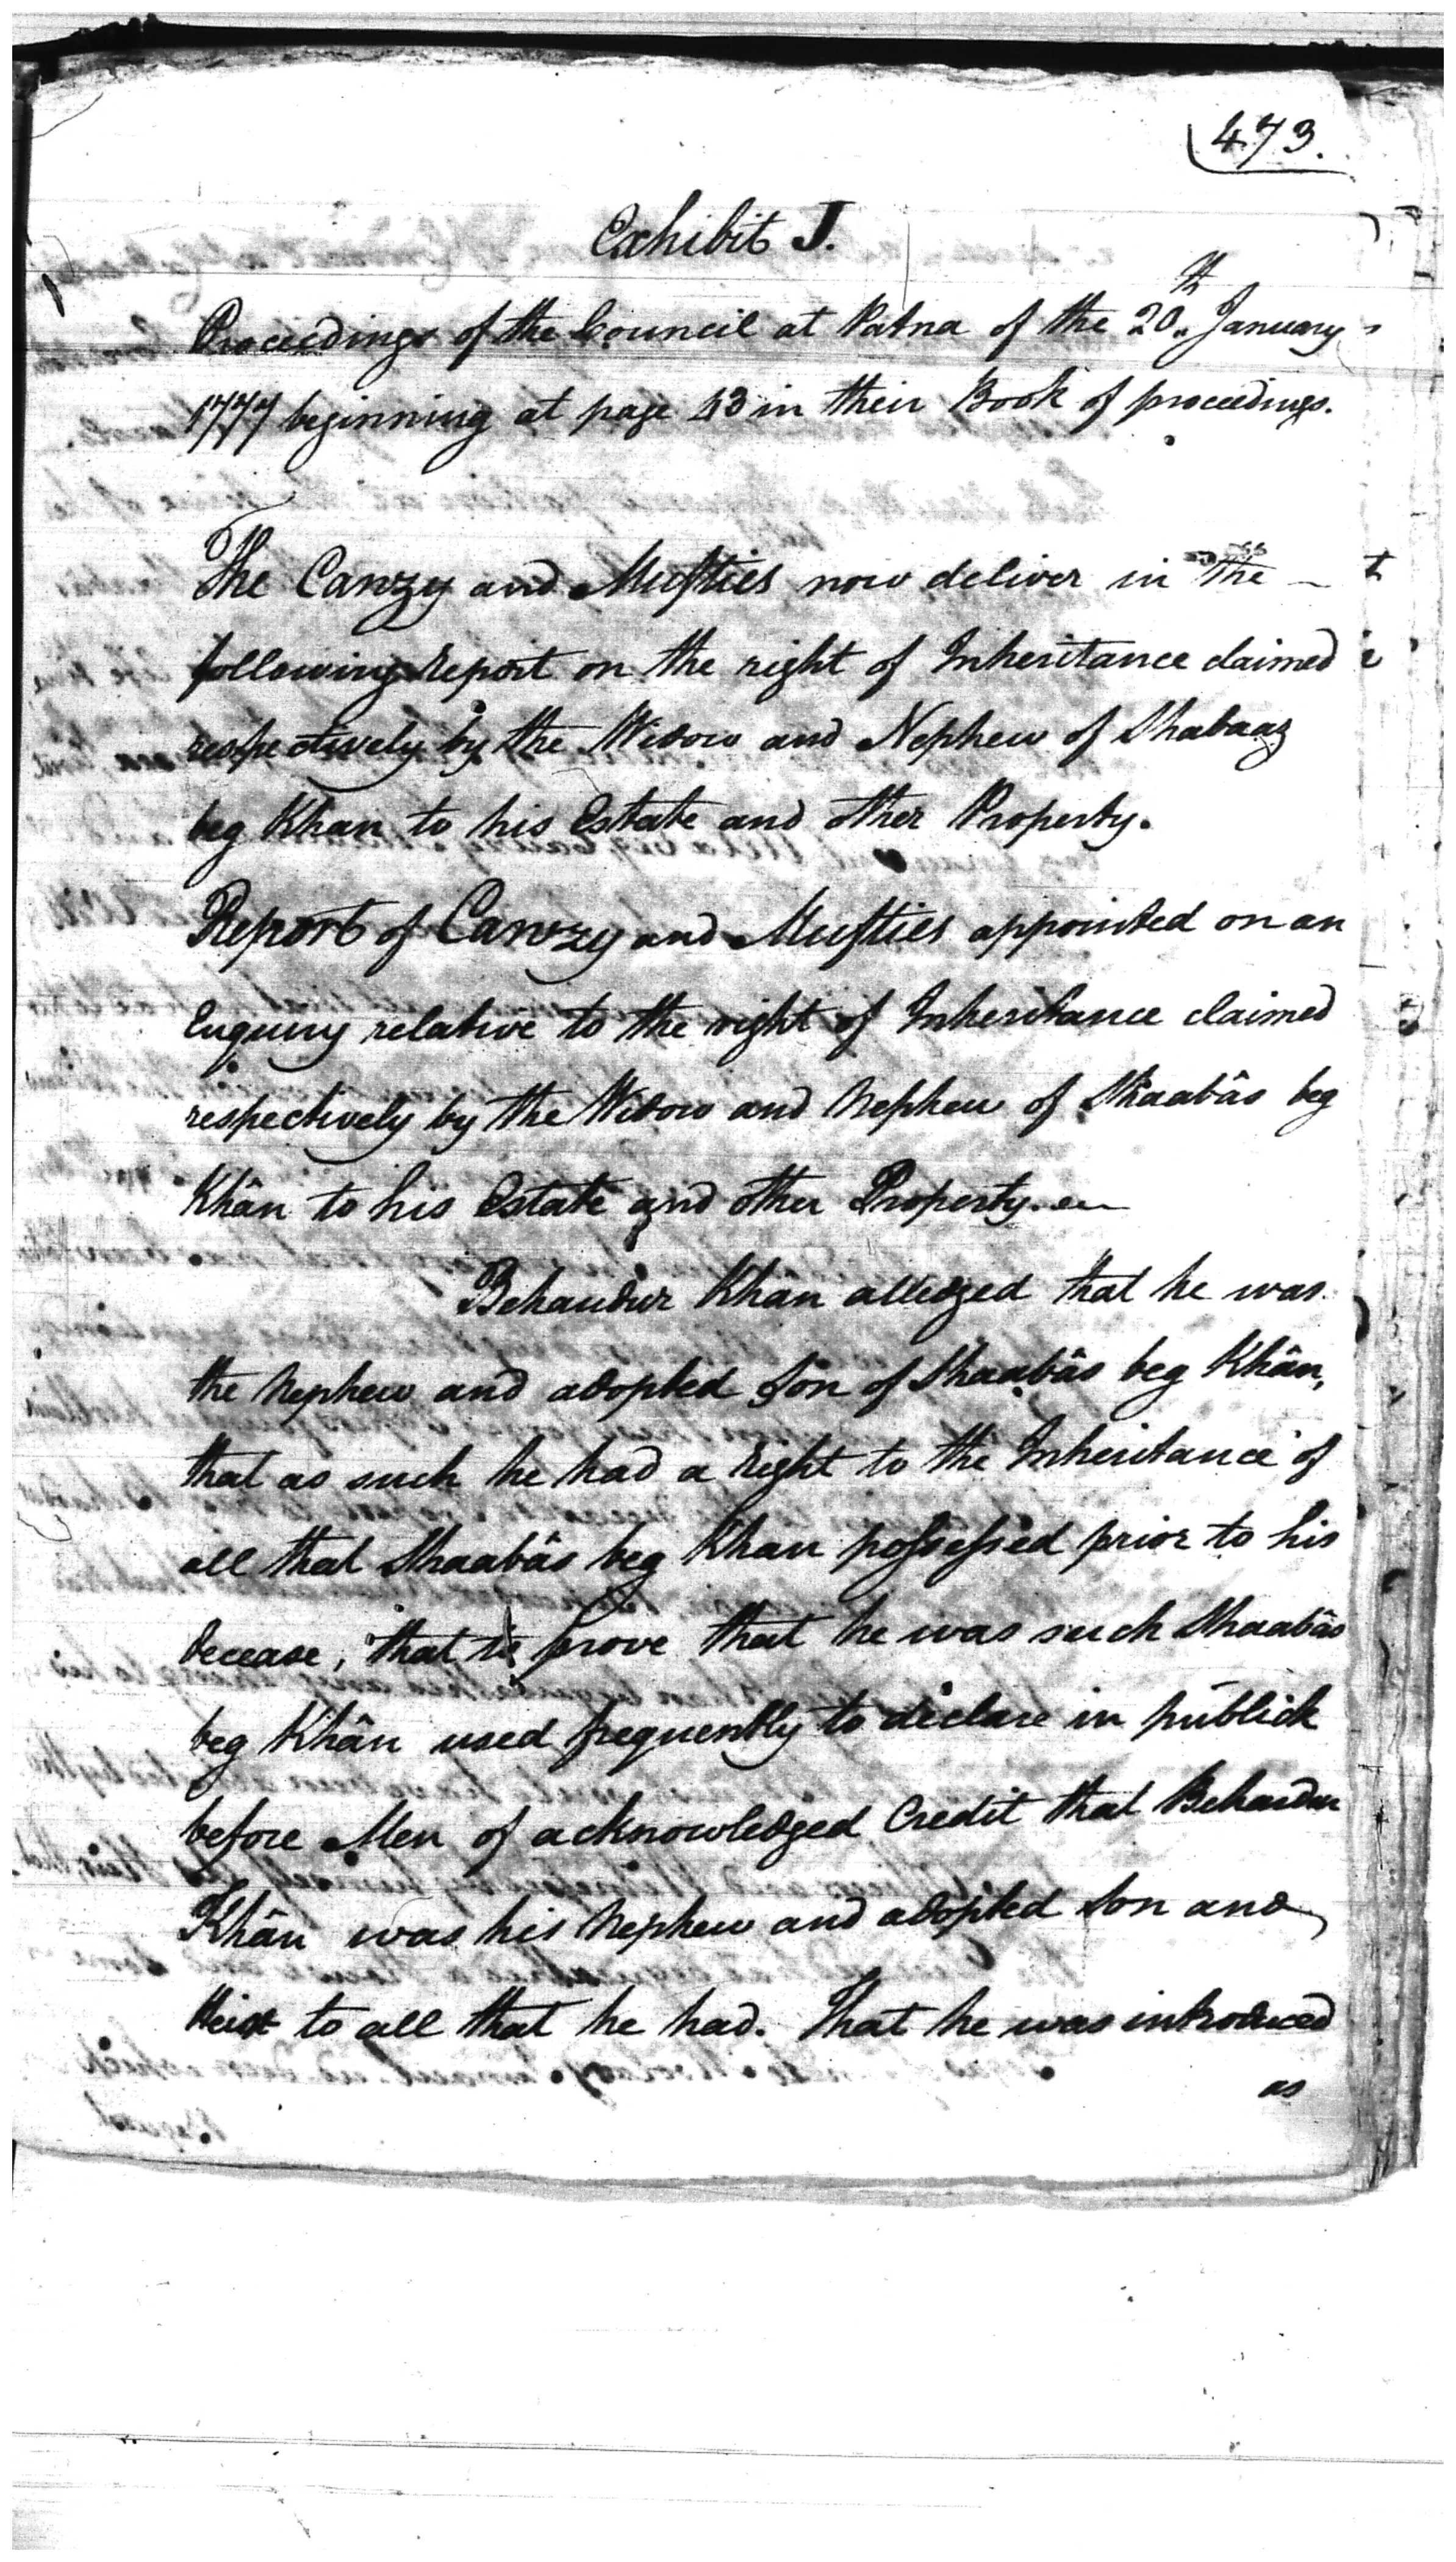 473.
Exhibit J.
Proceedings of the Council at Patna of the 20th January
1777 beginning at page 43 in their Book of proceedings.
The Cawzy and Mufties now deliver in the
following report on the right of Inheritance claimed
respectively by the Widow and Nephew of Shabaaz
beg Khan to his Estate and other Property.
Report of Cawzy and Mufties appointed on an
Enquiry relative to the right of Inheritance claimed
respectively by the Widow and Nephew of Shaabâs beg
Khân to his Estate and other Property.
Behaudur Khân alledged that he was
the Nephew and adopted Son of Shaabâs beg Khân,
that as such he had a right to the Inheritance of
all that Shaabâs beg Khan possessed prior to his
decease, that to prove that he was such Shaabâs
beg Khân used frequently to declare in publick
before Men of acknowledged Credit that Behaudur
Khân was his Nephew and adopted Son and
Heir to all that he had. That he was introduced
as